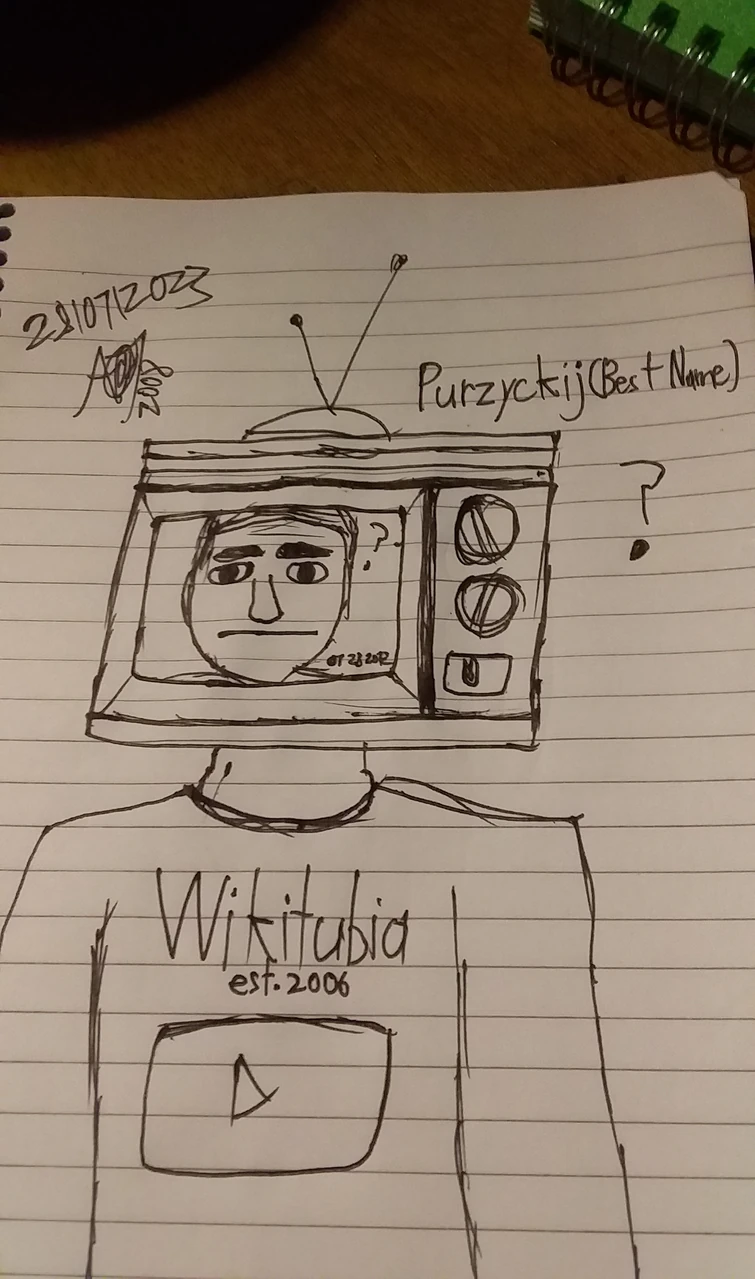 28/07/2023
2008
Purzyckij (Best Name)
?
?
07 28 2012
Wikitubia
est. 2006